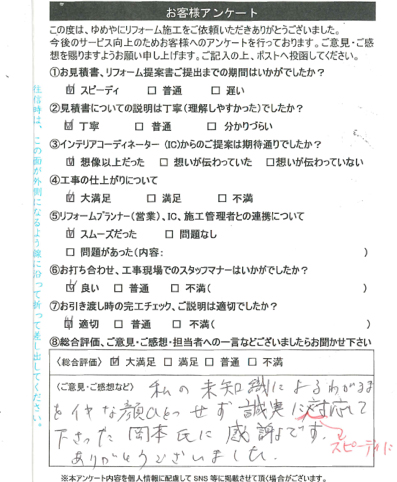 お客様アンケート
この度は、ゆめやにリフォーム施工をご依頼いただきありがとうございました。
今後のサービス向上のためお客様へのアンケートを行っております。ご意見・ご感
想を賜りますようお願い申し上げます。ご記入の上、ポストへ投函してください。
①お見積書、リフォーム提案書ご提出までの期間はいかがでしたか？
☑ スピーディ □ 普通 □ 遅い
②見積書についての説明は丁寧(理解しやすかった)でしたか？
☑ 丁寧 □ 普通 □ 分かりづらい
③インテリアコーディネーター(IC)からのご提案は期待通りでしたか？
☑ 想像以上だった □ 想いが伝わっていた □想いが伝わっていない
④工事の仕上がりについて
☑ 大満足 □ 満足 □ 不満
⑤リフォームプランナー(営業)、IC、施工管理者との連携について
☑ スムーズだった □ 問題なし
□ 問題があった(内容: )
⑥お打ち合わせ、工事現場でのスタッフマナーはいかがでしたか？
☑ 良い □ 普通 □ 不満( )
⑦お引き渡し時の完工チェック、ご説明は適切でしたか？
☑ 適切 □ 普通 □ 不満( )
⑧総合評価、ご意見・ご感想・担当者への一言などございましたらお聞かせ下さい
〈総合評価〉 ☑ 大満足 □ 満足 □ 普通 □ 不満
〈ご意見・ご感想など〉 私の未知識によるわがまま
をイヤな顔ひとつせず誠実に対応して
下さった岡本氏に感謝です。
スピーディに
ありがとうございました。
※本アンケート内容を個人情報に配慮して SNS 等に掲載させて頂く場合がございます。
往信時は、この面が外側になるよう線に沿って折って差し出してください。